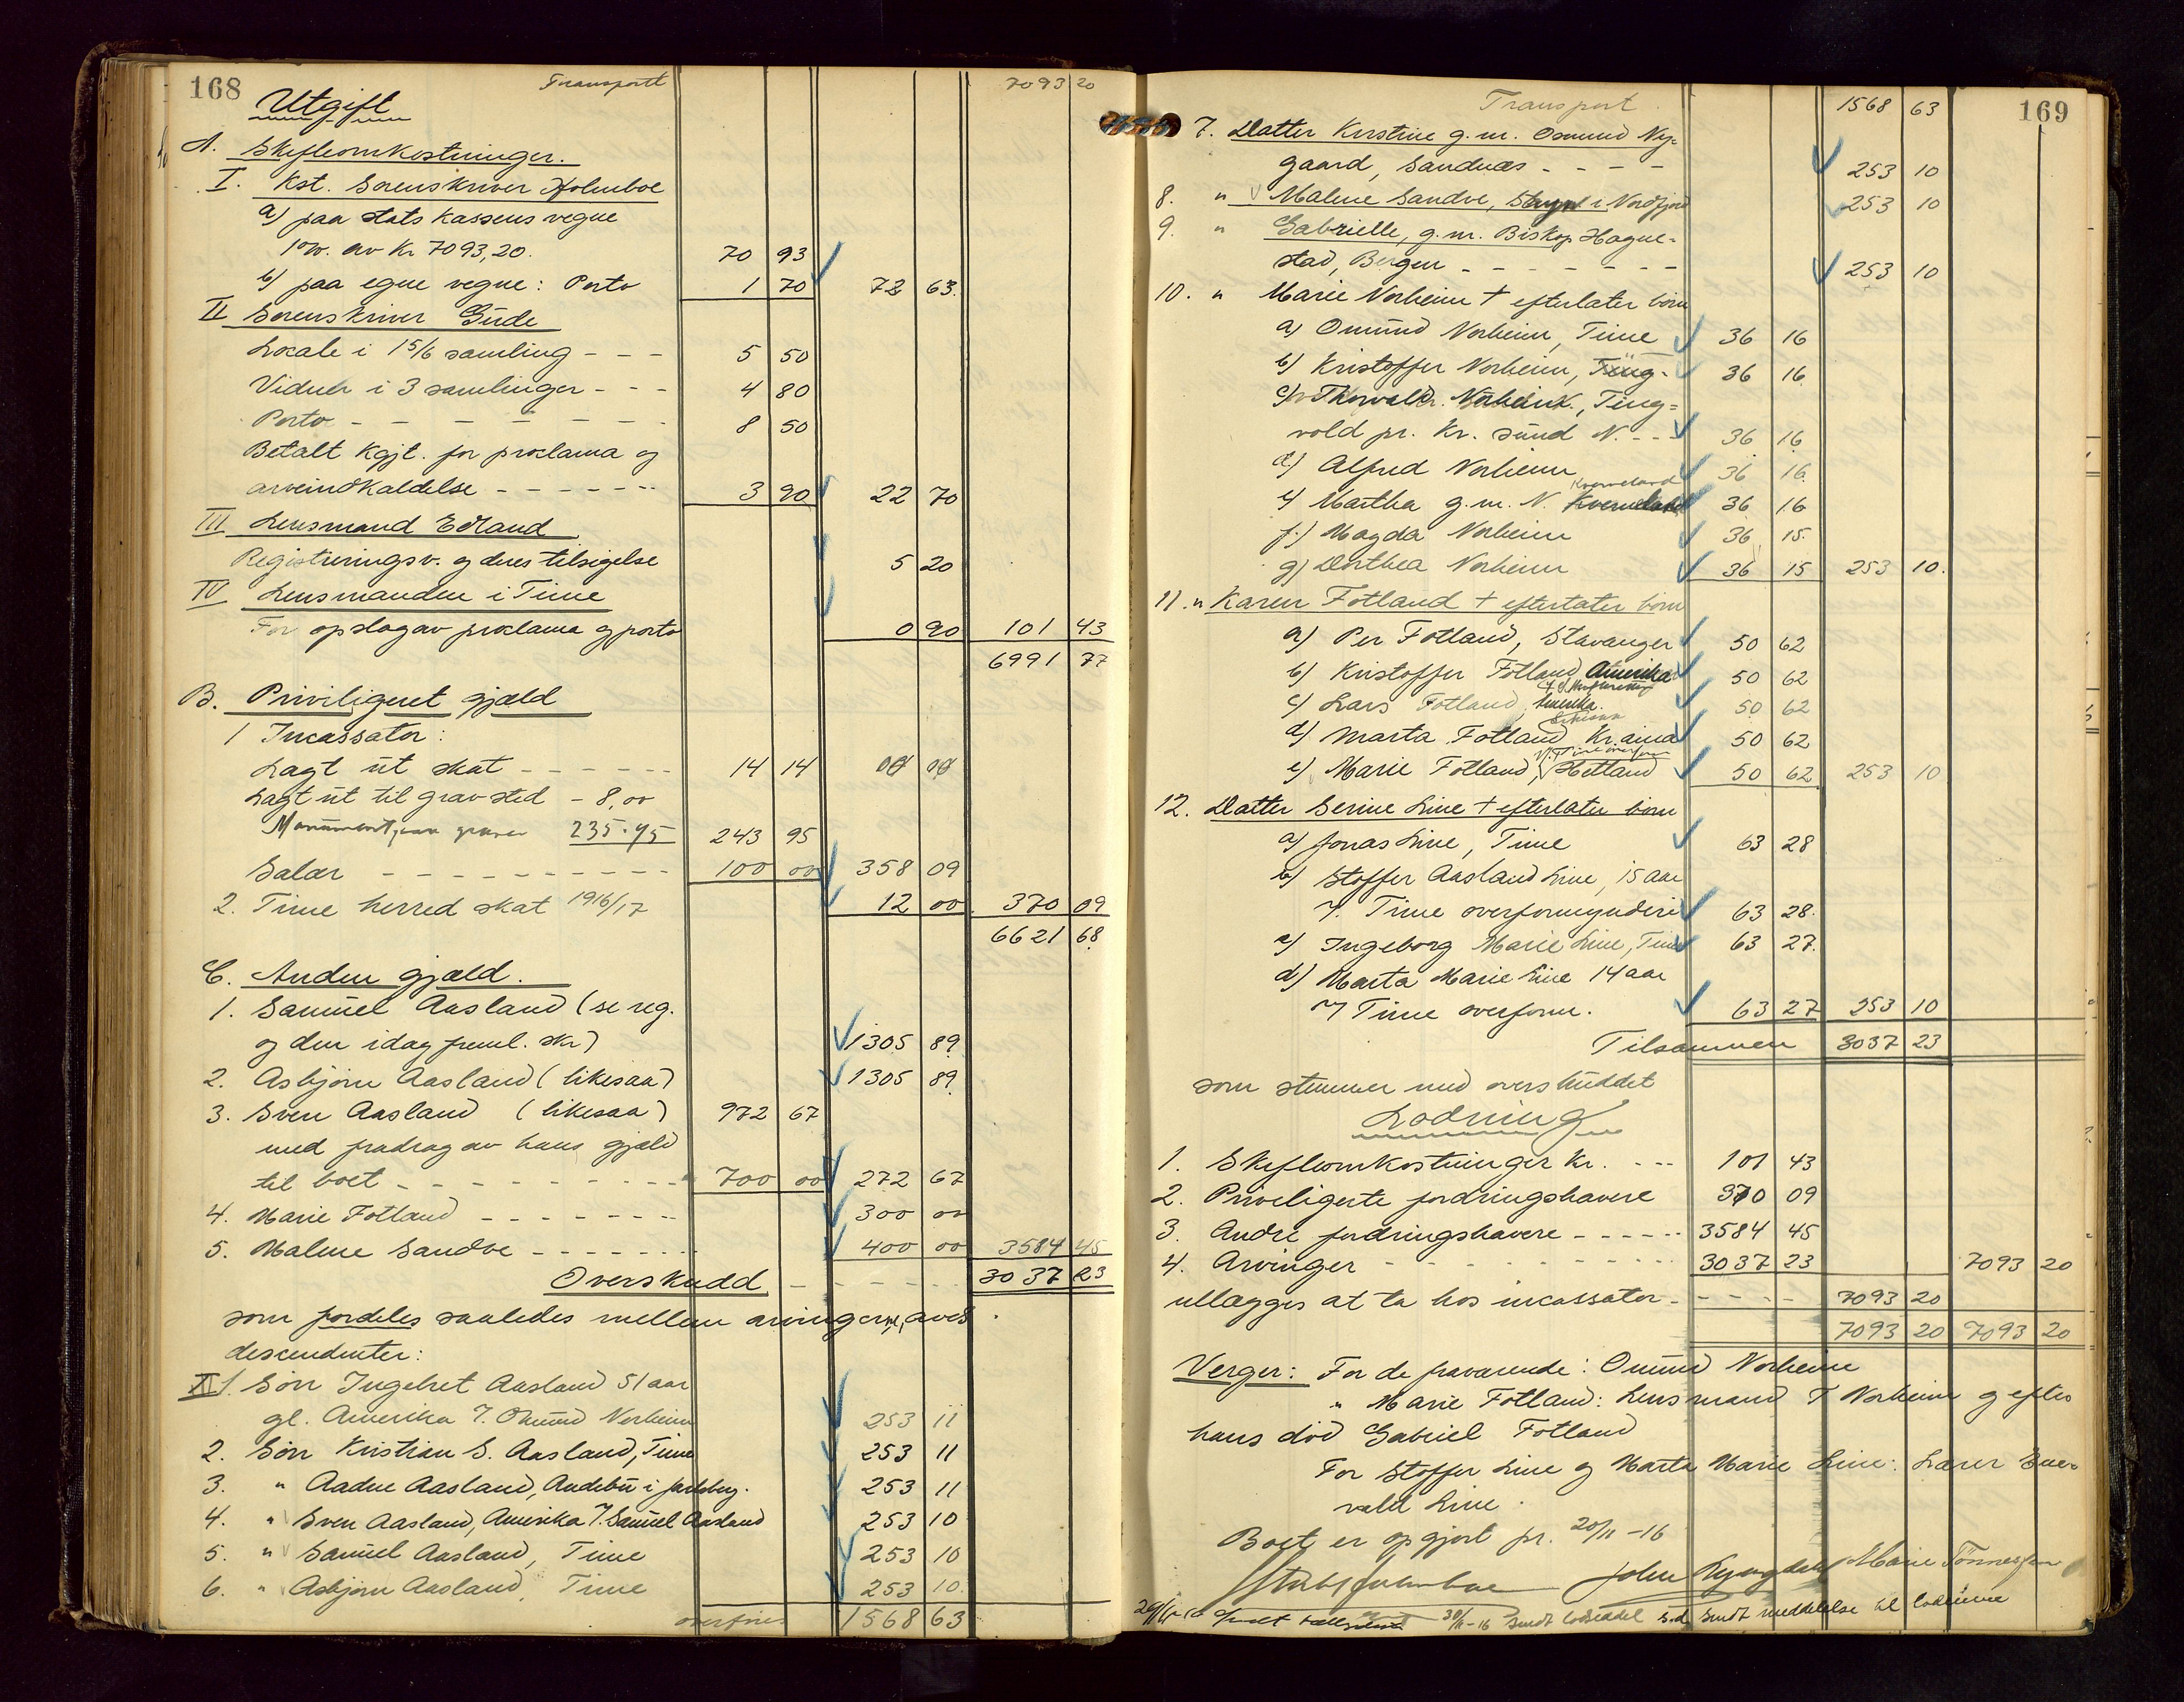 168
Transport 7093 20
Utgift
A. Skifteomkostninger.
I. Kst. Sorenskriver Holmboe
a) paa statskassens vegne
1 % av Kr 7093,20. 70 93
b) paa egne vegne: Porto 1 70 72 63.
II Sorenskriver Gude
Locale i 15/6 samling - - - 5 50
Vidner i 3 samlinger - - - 4 80
Porto - - - - - - 8 50
Betalt Kgjt. for proclama og
arveindkaldelse - - - - - - 3 90 22 70
III Lensmand Edland
Registreringsv. og deres tilsigelse 5 20
IV Lensmanden i Time
For opslag av proclama og porto 0 90 101 43
6991 77
B. Priviligeret gjæld
1 Incassator:
Lagt ut skat - - - - - - 14 14
Lagt ut til gravsted - 8,00
Monument paa graven 235.95 243 95
Salær - - - - - - - - - - 100 00 358 09
2. Time herred skat 1916/17 12 00 370 09
6621 68
C. Anden gjæld.
1. Samuel Aasland (se reg.
og den idag freml. skr) 1305 89
2. Asbjørn Aasland (likesaa) 1305 89
3. Sven Aasland (likesaa) 972 67
med fradrag av hans gjæld
til boet - - - - - - - - - 700 00 272 67
4. Marie Fotland - - - - - - - 300 00
5. Malene Sandve - - - - - - 400 00 3584 45
Overskudd - - - - - 3037 23
som fordeles saaledes mellem arvingerne, avds
descendenter:
1. Søn Ingebret Aasland 51 aar
gl. Amerika v. Omund Norheim 253 11
2. Søn Kristian S. Aasland, Time 253 11
3. " Aadne Aasland, Andebu i Jarlsberg. 253 11
4. " Sven Aasland, Amerika v. Samuel Aasland 253 10
5. " Samuel Aasland, Time 253 10
6. " Asbjørn Aasland, Time 253 10
overføres 1568 63
169
Transport 1568 63
7. Datter Kirstine g. m. Osmund Ny-
gaard, Sandnæs - - - - 253 10
8. " Malene Sandve, Stryn i Nordfjord 253 10
9. " Gabrielle, g. m. Biskop Hogne-
stad, Bergen - - - - - - - 253 10
10. " Marie Norheim + efterlater børn
a) Omund Norheim, Time 36 16
b) Kristoffer Norheim, 36 16
c) Thorvald Norheim, Ting=
vold pr. Kr. sund N. - - 36 16
d) Alfred Norheim 36 16
e) Martha g. m. N. Kverneland 36 16
f.) Magda Norheim 36 15
g) Dorthea Norheim 36 15 253 10.
11. " Karen Fotland + efterlater børn
a) Per Fotland, Stavanger 50 62
b) Kristoffer Fotland Amerika 50 62
c) Lars Fotland, Amerika. 50 62
d) Marta Fotland Kr.ania 50 62
e) Marie Fotland, Hetland 50 62 253 10
12. Datter Serine Line + efterlater børn
a) Jonas Line, Time 63 28
b) Stoffer Aasland Line, 15 aar
v. Time overformynderi 63 28.
c) Ingeborg Marie Line, Time 63 27.
d) Marta Marie Line 14 aar
v/ Time overform. 63 27 253 10
Tilsammen 3037 23
som stemmer med overskuddet
Lodning
1. Skifteomkostninger Kr. - - - 101 43
2. Priveligerte fordringshavere 370 09
3. Andre fordringshavere - - - - - 3584 45
4. Arvinger - - - - - - - - - 3037 23 7093 20
utlægges at ta hos incassator - - - - 7093 20
7093 20 7093 20
Verger: For de fraværende: Omund Norheim
" Marie Fotland: Lensmand T Norheim og efter
hans død Gabriel Fotland
For Stoffer Line og Marta Marie Line: Lærer Ener-
vald Line.
Boet er opgjort pr. 20/11 -16
John Lyngdal Marie Tønnessen
30/11-16 sendt lodseddel s.d. sendt meddelelse til lodeierne